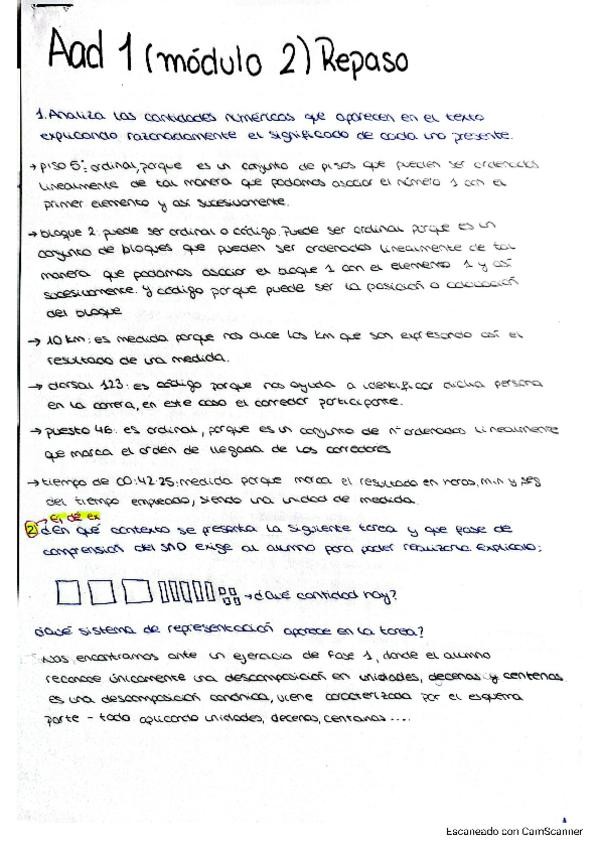 Aad 1 (módulo 2) Repaso
1. Analiza las cantidades numéricas que aparecen en el texto
explicando razonadamente el significado de cada uno presente.
→ piso 5: ordinal, porque es un conjunto de pisos que pueden ser ordenados
linealmente de tal manera que podamos asociar el número 1 con el
primer elemento y así sucesivamente.
→ bloque 2: puede ser ordinal o código. Puede ser ordinal porque es un
conjunto de bloques que pueden ser ordenados linealmente de tal
manera que podamos asociar el bloque 1 con el elemento 1 y así
sucesivamente. y código porque puede ser la posición o colocación
del bloque
→ 10 km: es medida porque nos dice los km que son expresando así el
resultado de una medida.
→ dorsal 123: es código porque nos ayuda a identificar dicha persona
en la carrera, en este caso el corredor participante.
→ puesto 46: es ordinal, porque es un conjunto de nº ordenados linealmente
que marca el orden de llegada de los corredores
→ tiempo de 00:42:25: medida porque marca el resultado en horas, min y seg
del tiempo empleado, siendo una unidad de medida.
→ Ej de ex
2) ¿En qué contexto se presenta la siguiente tarea y que fase de
comprensión del SND exige al alumno para poder realizarla? Explícalo:
→ ¿Qué cantidad hay?
¿Qué sistema de representación aparece en la tarea?
Nos encontramos ante un ejercicio de Fase 1, donde el alumno
reconoce únicamente una descomposición en unidades, decenas y centenas
es una descomposición canónica, viene caracterizada por el esquema
parte - todo aplicando unidades, decenas, centenas ....
Escaneado con CamScanner